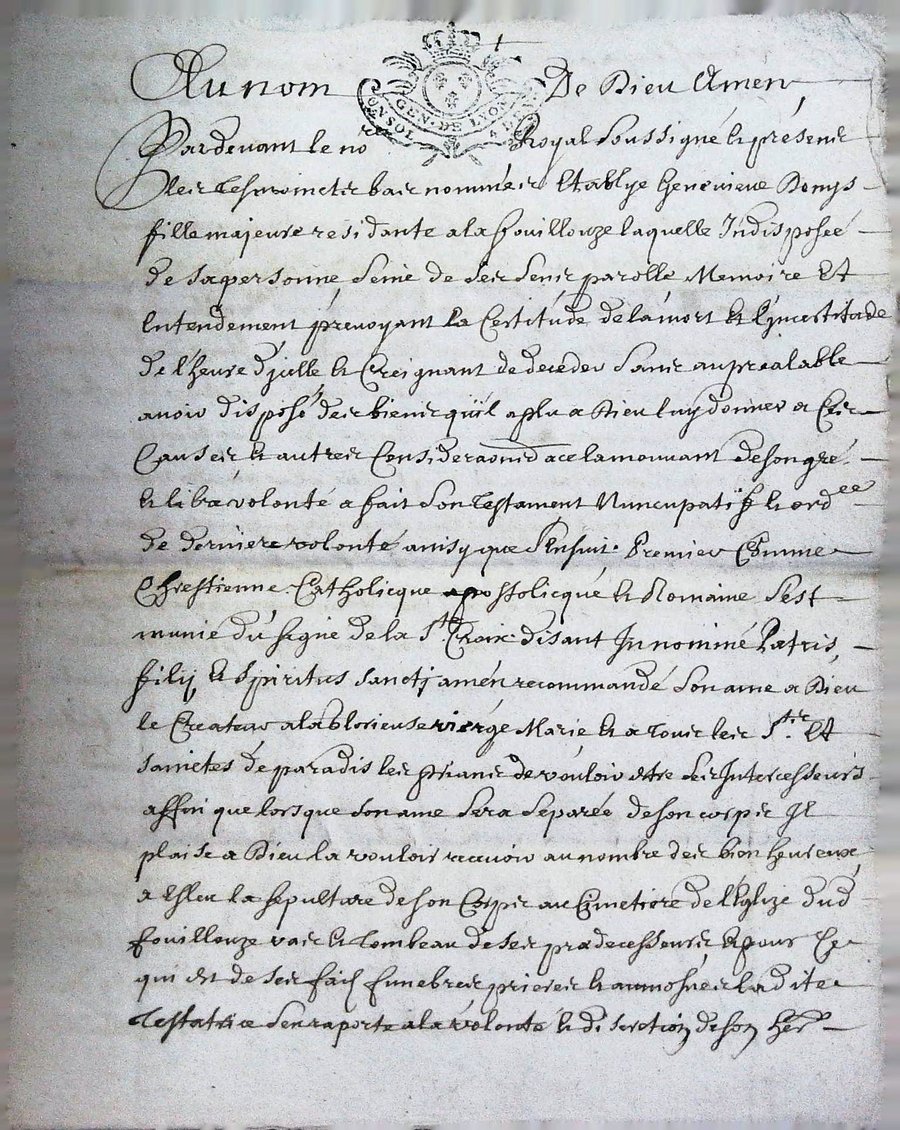 Au nom De Dieu Amen
GEN. DE LYON
Pardevant le no^re Royal Soussigné & presents
Les tesmoincts bas nommés Establye Genevieve Denys
fille majeure residante a la fouillouze laquelle Indisposée
de sa personne Seine de Ses Sens parolle Memoire Et
Entendement prevoyant La Certitude de la mort & L'jncertitude
de l'heure d'jcelle & Creignant de deceder Sans au prealable
avoir disposé des biens qu'il a plu a Dieu luy donner a Ces
Causes & autres Consideraons a ce la mouvant de son gré
& libre volonté a fait Son Testament Nuncupatif & ord^ee
de derniere volonté ainsy que S'ensuit Premier Comme
Chrestienne Catholicque apostolicque & Romaine S'est
munie du Signe de la S^te Croix disant Jn nomine Patris,
filij, & Spiritus Sanctj amen recommandé Son ame a Dieu
le Createur a la Glorieuse vierge Marie & a Tous les S^ts Et
Sainctes de paradis les priant de vouloir estre Ses Intercesseurs
affin que lorsque Son ame Sera Separée de son corps Il
plaise a Dieu la vouloir recevoir au nombre des bien heureux,
a Esleu la Sepulture de son Corps au Cimetiere de l'Eglize dud
fouillouze vas & Tombeau de ses predecesseurs & pour Ce
qui est de ses fais funebres prieres & aumosnes ladite
Testatrice S'en raporte a la volonté & discretion de son her^r